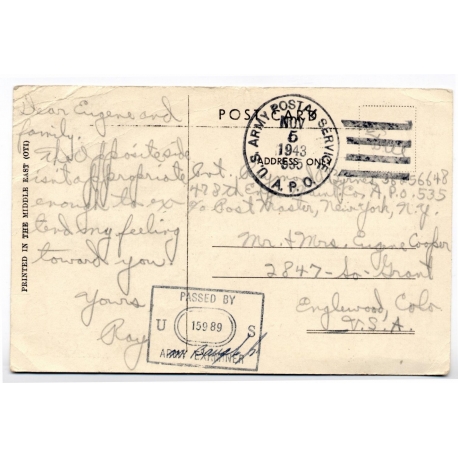 POST CARD
Dear Eugene and
family.
This opposite side
isn't appropriate
enough to ex-
tend my feeling
toward you
Yours
Ray
PRINTED IN THE MIDDLE EAST (OTI)
U.S. ARMY POSTAL SERVICE
NOV
5
1943
535
A.P.O.
ADDRESS ONLY
38056648
Co, A.P.O. 535
℅ Post Master, New York, N.Y.
Mr. & Mrs. Eugene Cooper
2847-So-Grant
Englewood, Colo
U.S.A.
PASSED BY
U 15989 S
ARMY EXAMINER